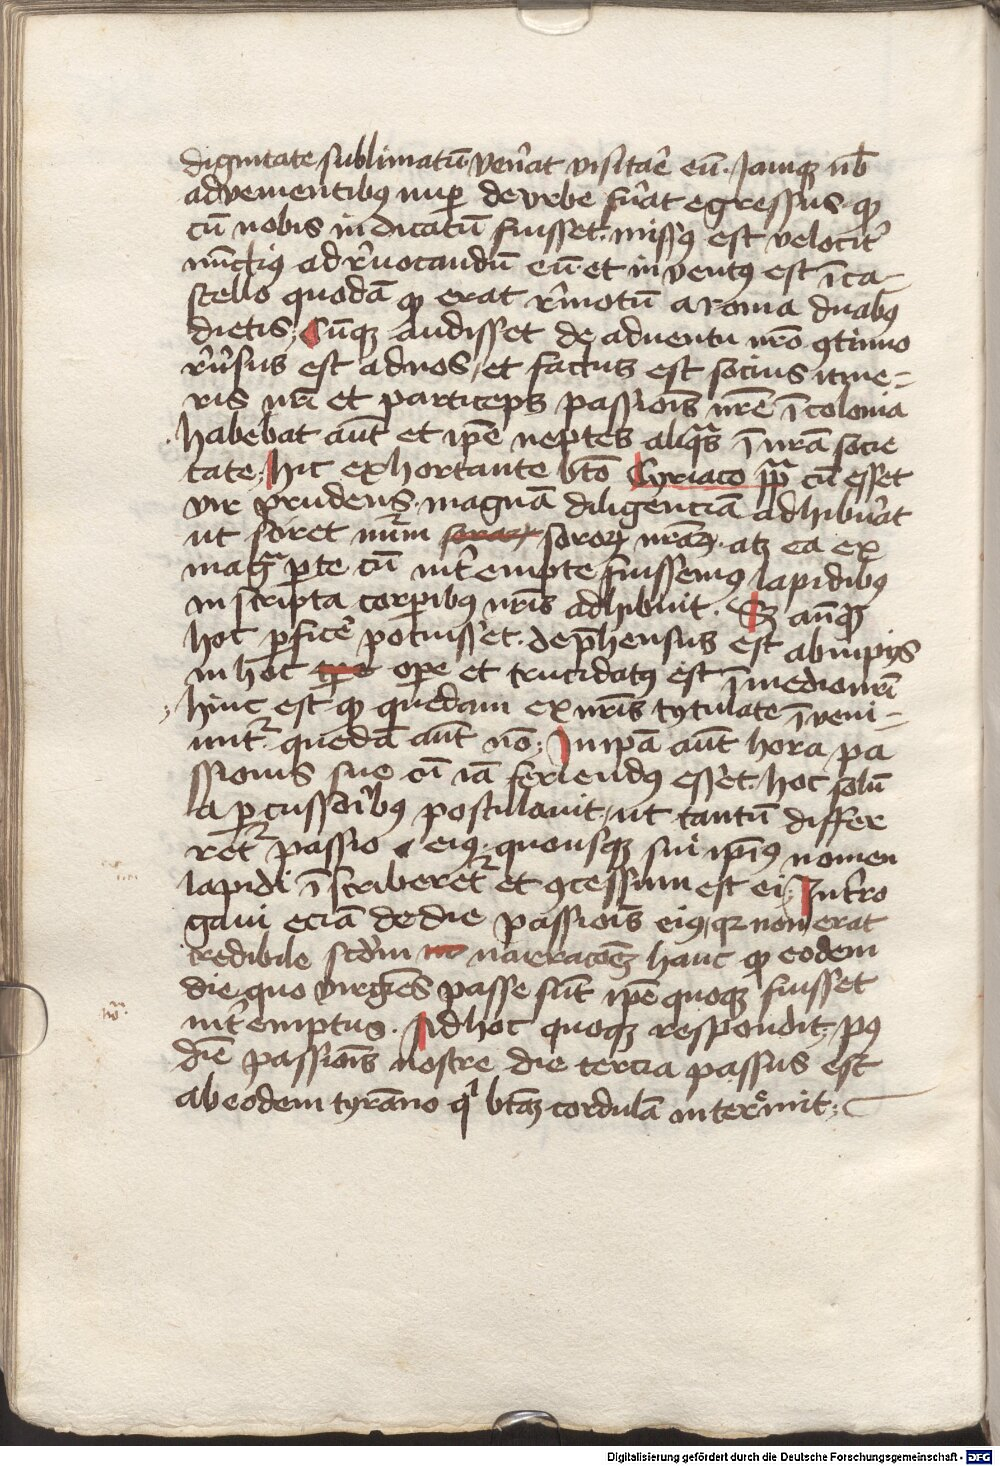 dignitate sublimatū ven̄at visitar̄e eū. Jamqꝫ nb̄
advenientibus nup de vrbe fūat egressus. qꝫ
cū nobis indicatū fuisset. missus est velocit̄
nūctius ad rēuocandū eū. et inventus est ī ca-
stello quodā qꝫ erat rēmotū a roma duabus
dietis; Cūqꝫ audisset de adventu nr̄o ꝯtinuo
rēūsus est ad nos, et factus est socius itine=
ris nr̄i et particeps passiōis nr̄e ī colonia
habebat aūt et ip̄e neptes aliqᵃs ī nr̄a socie
tate; hic exhortante bt̄o Cyriaco pp̄a cū esset
vir prudens. magnā diligenciā adhibūat
ut sciret nūm sororꝝ nr̄aꝝ. atqꝫ ea ex
magᵃ pte cū int̄empte fuissemus lapidibus
inscripta corpibus nr̄is adhibuit. Sꝫ anq̄ꝫ
hoc pficē potuisset. dep̄hensus est ab impijs
in hoc ope et trucidatus est ī medio nr̄i
hinc est qꝫ quedam ex nr̄is tytulate ī veni=
unt̄. quedā aūt nō; In ip̄a aūt hora pa
ssionis sue cū iā feriendus esset. hoc solū
a pcussorībus postulauit, ut tantū differ
ret̄ passio eius. quousqꝫ sui ip̄ius nomen
lapidi īscriberet̄ et ꝯcessum est ei. Int̄ro
gaui eciā de die passiōis eius, qꝛ non erat
credibile scd̄m narracōꝫ hanc qꝫ eodem
die quo virgīes passe sūt ip̄e quoqꝫ fuisset
int̄emptus. Ad hoc quoqꝫ respondit. pꝰ
diē passiōis nostre die tercia passus est
ab eodem tyrāno qⁱ bt̄aꝫ cordulā interimit;